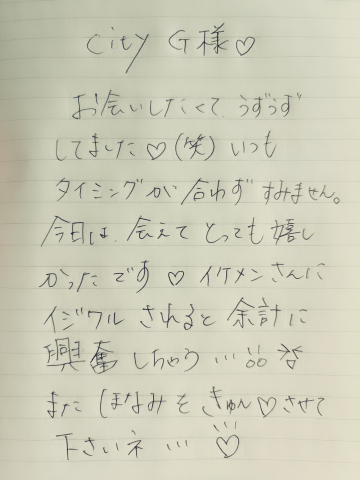 City G様♡
お会いしたくて、うずうず
してました♡(笑)いつも
タイミングが合わずすみません。
今日は、会えてとっても嬉し
かったです♡イケメンさんに
イジワルされると余計に
興奮しちゃう…
またほなみをきゅん♡させて
下さいネ…♡